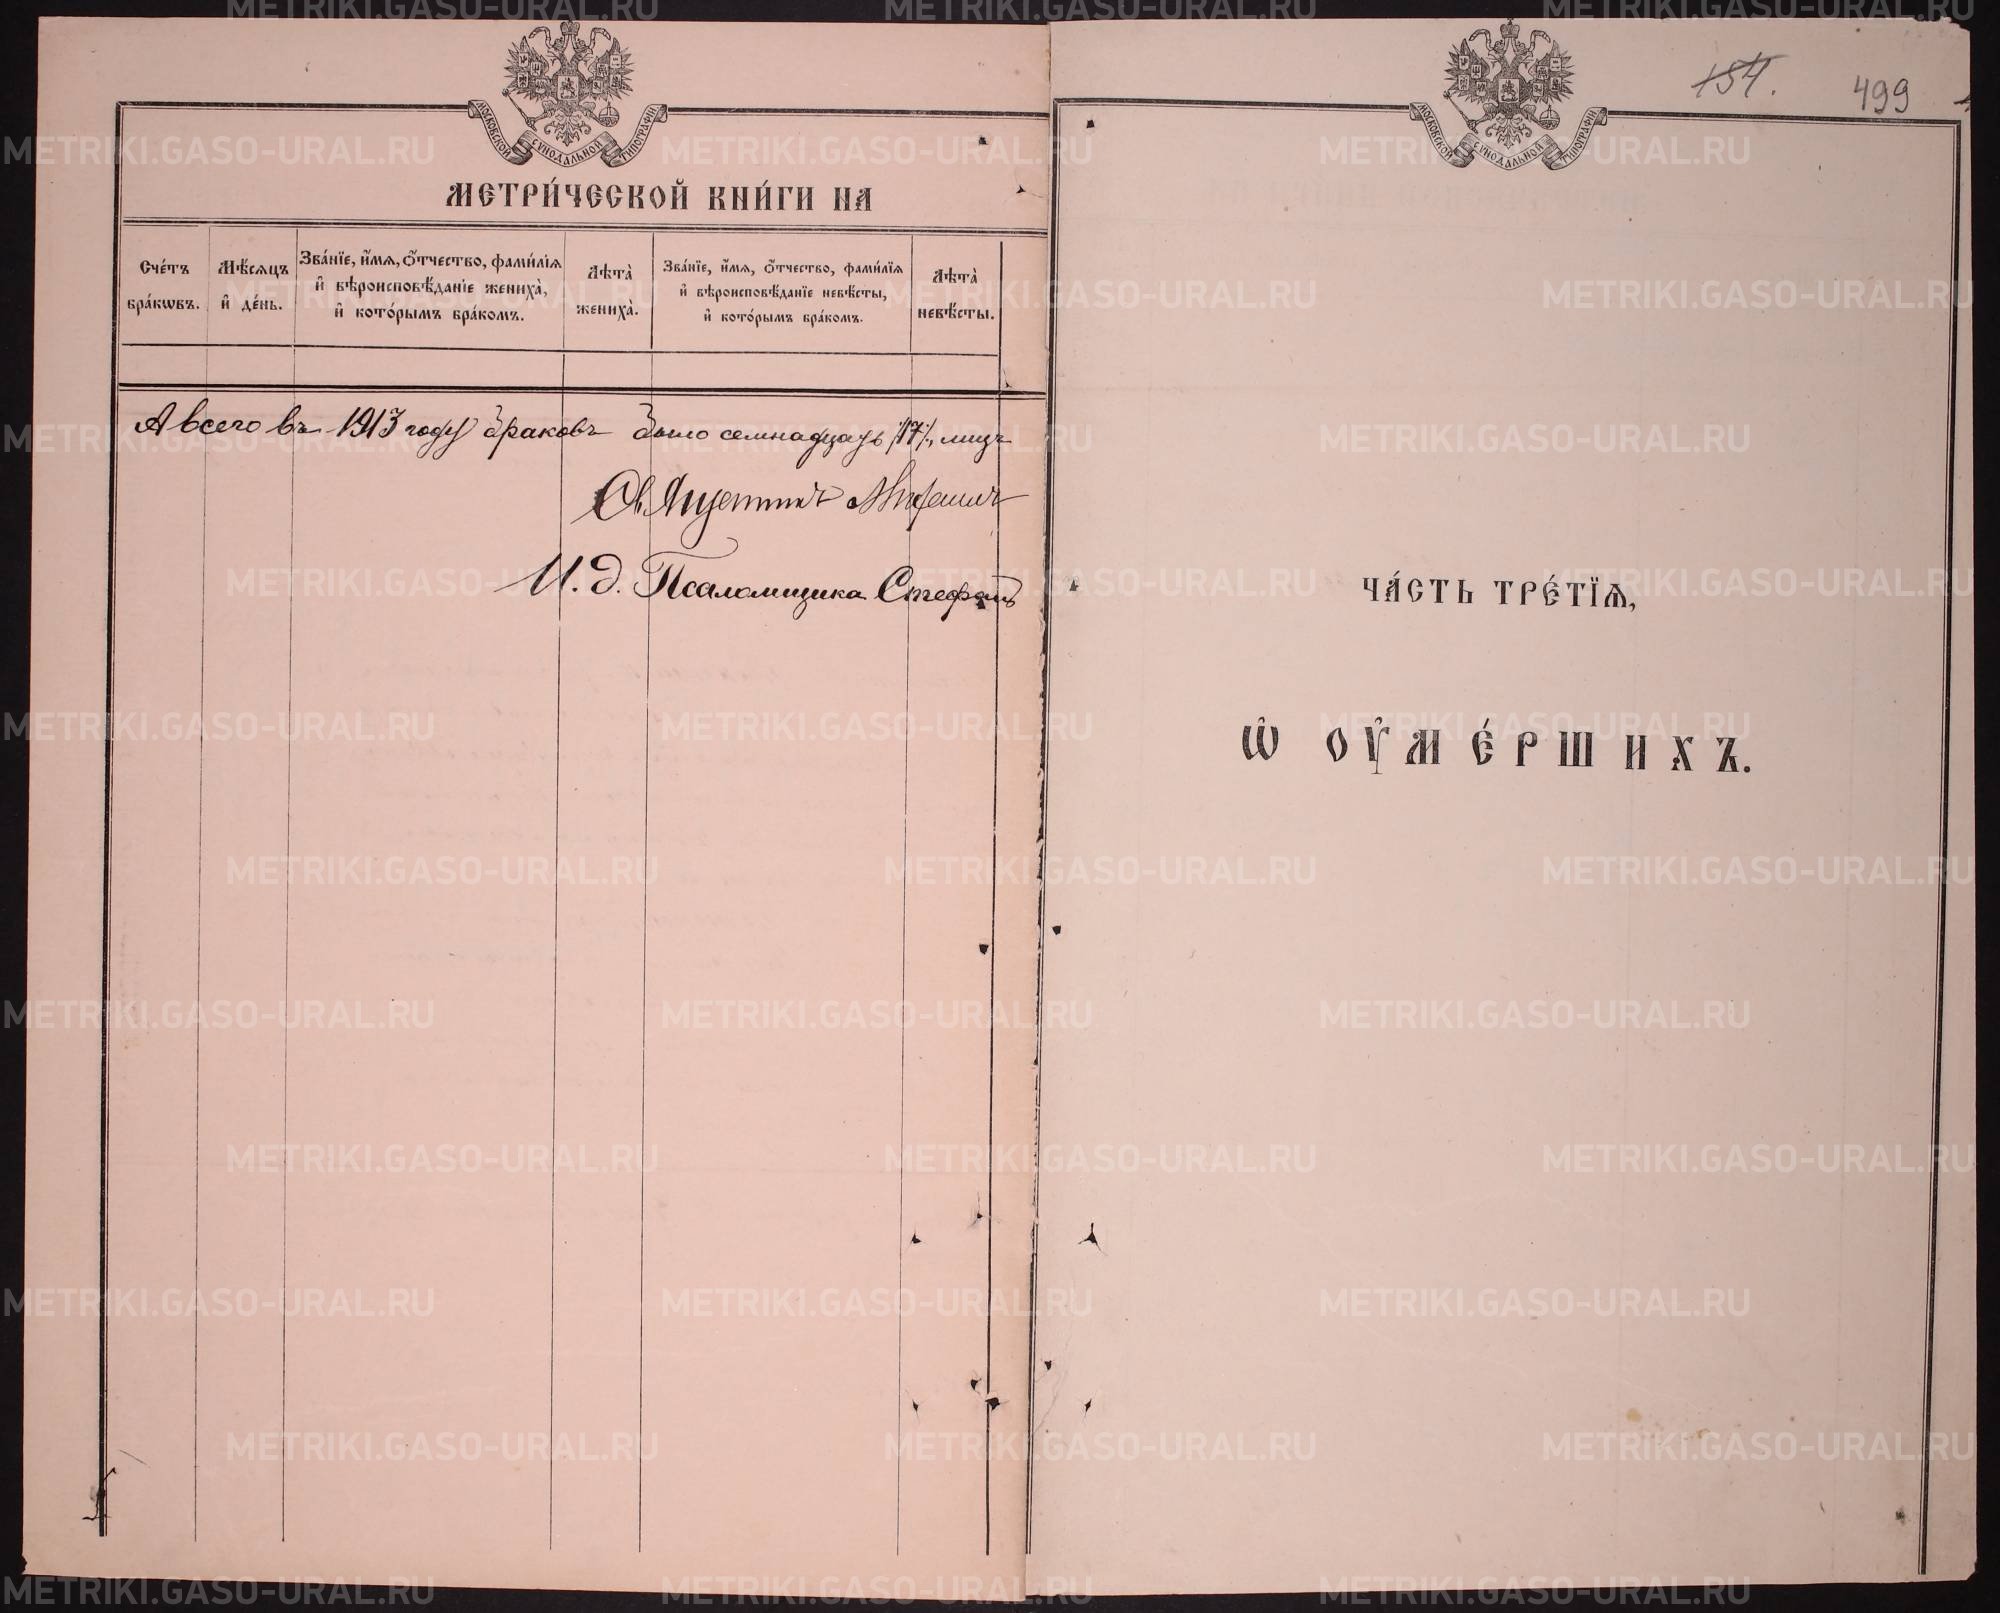 МОСКОВСКОЙ СѴНОДАЛЬНОЙ ТИПОГРАФІИ
МЕТРИ́ЧЕСКОЙ КНИ́ГИ НА
Сче́тъ бра́кѡвъ.
Мѣ́сѧцъ и҆ де́нь.
Зва́нїе, и҆́мѧ, ѻ҆́тчество, фами́лїѧ и҆ вѣроисповѣ́данїе жениха̀, и҆ кото́рымъ бра́комъ.
Лѣта̀ жениха̀.
Зва́нїе, и҆́мѧ, ѻ҆́тчество, фами́лїѧ и҆ вѣроисповѣ́данїе невѣ́сты, и҆ кото́рымъ бра́комъ.
Лѣта̀ невѣ́сты.
А всего въ 1913 году браковъ было семнадцать /17/,
Св.
И. д. Псаломщика Стефанъ
МОСКОВСКОЙ СѴНОДАЛЬНОЙ ТИПОГРАФІИ
154.
499
ЧА́СТЬ ТРЕ́ТЇѦ,
Ѡ҆ ОУ҆МЕ́РШИХЪ.
METRIKI.GASO-URAL.RU